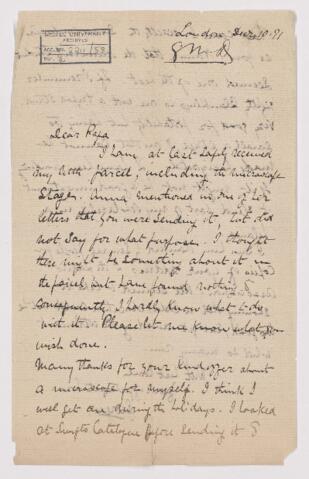 McGILL UNIVERSITY
ARCHIVES
ACC. NO.
London Dec 10. 91
Dear Papa
I have at last safely received
my little parcel, including the microscope
stage. Anna mentioned in one of her
letters that you were sending it, but did
not say for what purpose. I thought
there might be something about it in
the parcel but have found nothing &
consequently I hardly know what to do
with it. Please let me know what you
wish done.
Many thanks for your kind offer about
a microscope for myself. I think I
will get one during the holidays. I looked
at Swifts Catalogue before sending it &